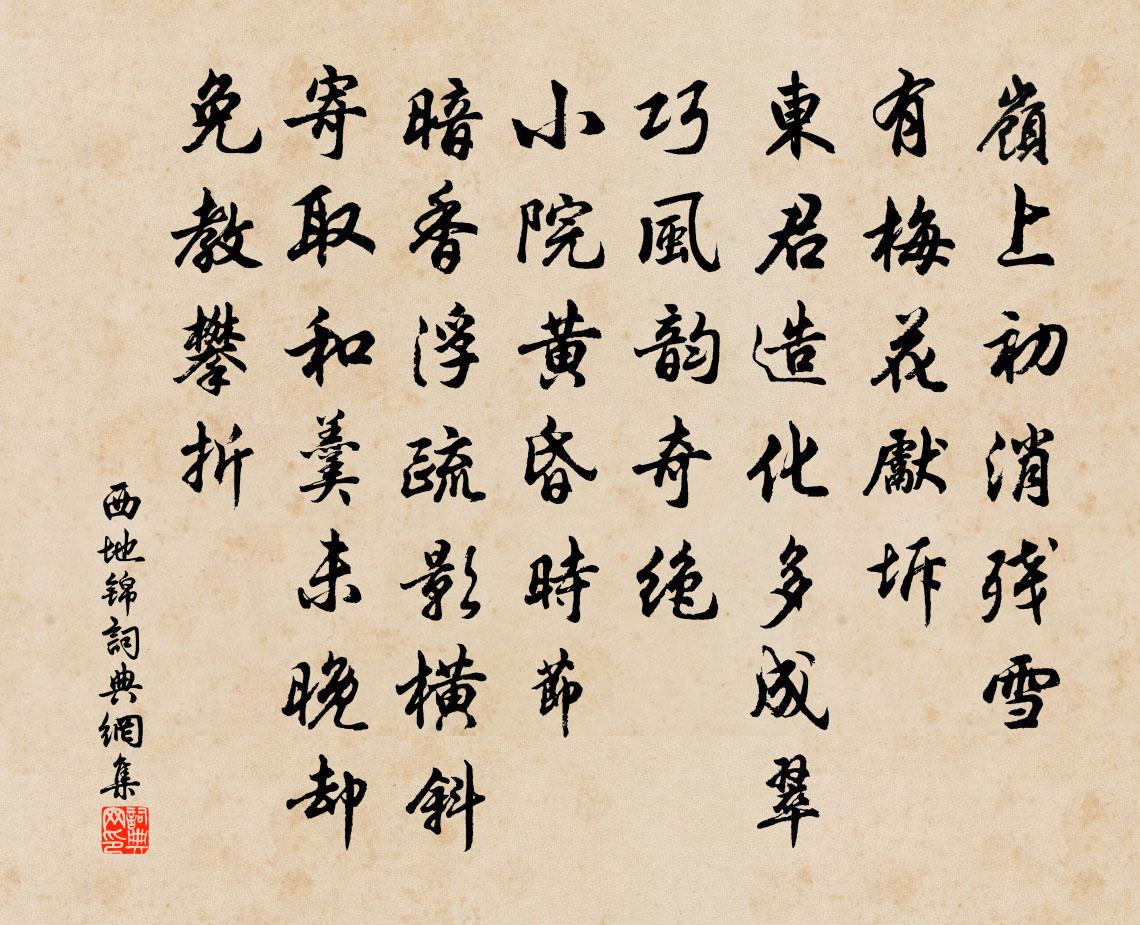 嶺上初消残雪
有梅花獻坼
東君造化多成翠
巧風韵奇絶
小院黄昏時節
暗香浮疏影橫斜
寄取和羹未晚却
免教攀折
西地錦詞典網集
詞典网印